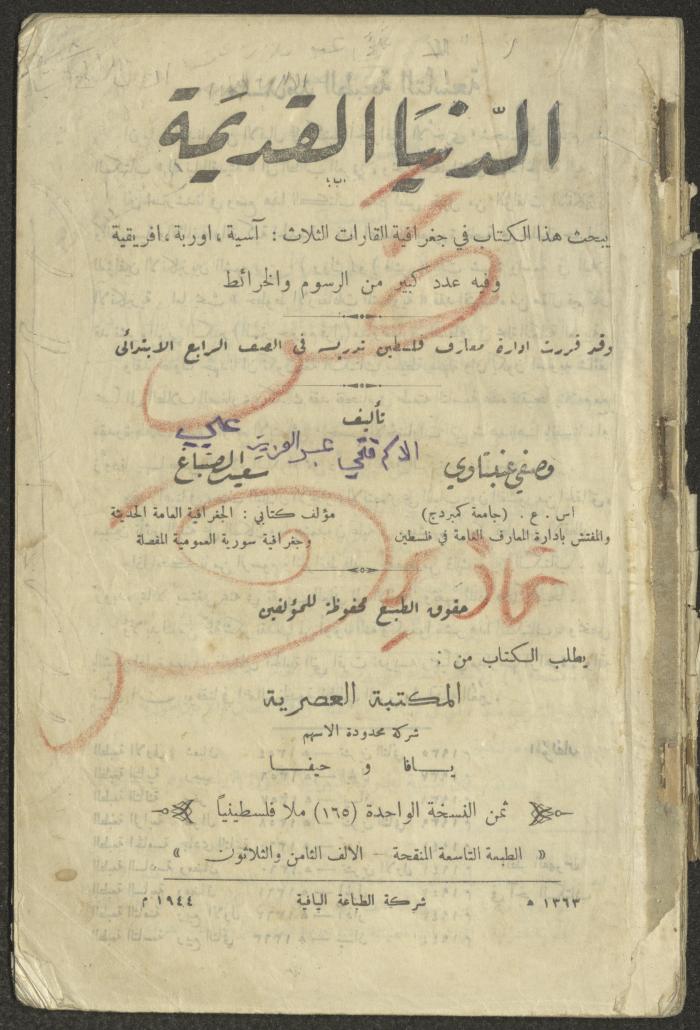 الدّنيَا القديمَة
يبحث هذا الكتاب في جغرافية القارات الثلاث : آسية ، اوربة ، افريقية
وفيه عدد كبير من الرسوم والخرائط
وقد قررت ادارة معارف فلسطين تدريسه في الصف الرابع الابتدائي
تأليف
الاسم فتحي عبد العزيز علي
وصفي عنبتاوي سعيد الصباغ
اس . ع . (جامعة كمبردج) مؤلف كتابي : الجغرافية العامة الحديثة
والمفتش بادارة المعارف العامة في فلسطين وجغرافية سورية العمومية المفصلة
حقوق الطبع محفوظة للمؤلفين
يطلب الكتاب من :
المكتبة العصرية
شركة محدودة الاسهم
يافا و حيفا
ثمن النسخة الواحدة (١٦٥) ملا فلسطينياً
« الطبعة التاسعة المنقحة — الالف الثامن والثلاثون »
١٣٦٣ هـ شركة الطباعة اليافية ١٩٤٤ م